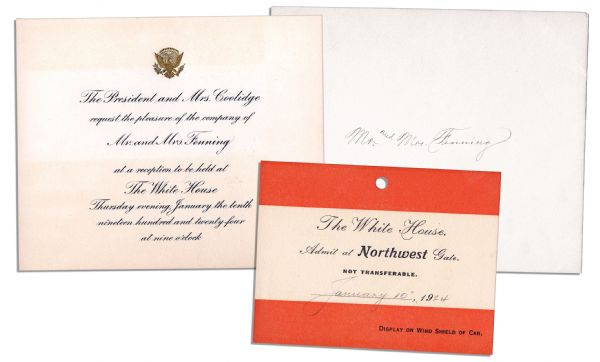 The President and Mrs. Coolidge
request the pleasure of the company of
Mr. and Mrs. Fenning
at a reception to be held at
The White House
Thursday evening, January the tenth
nineteen hundred and twenty-four
at nine o'clock
Mr. and Mrs. Fenning
The White House.
Admit at Northwest Gate.
NOT TRANSFERABLE.
January 10", 1924
DISPLAY ON WIND SHIELD OF CAR.